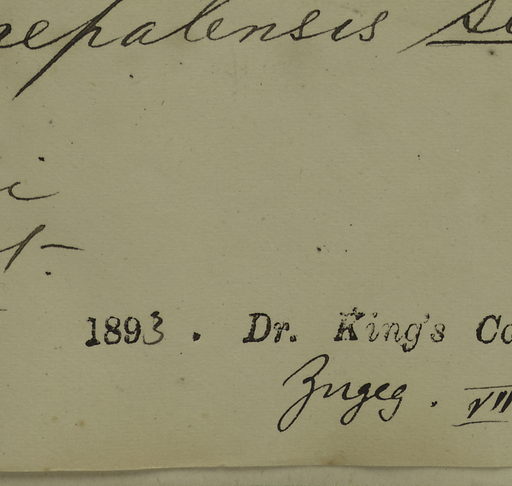 nepalensis
t.
1893. Dr. King's Co
Zugeg. VII